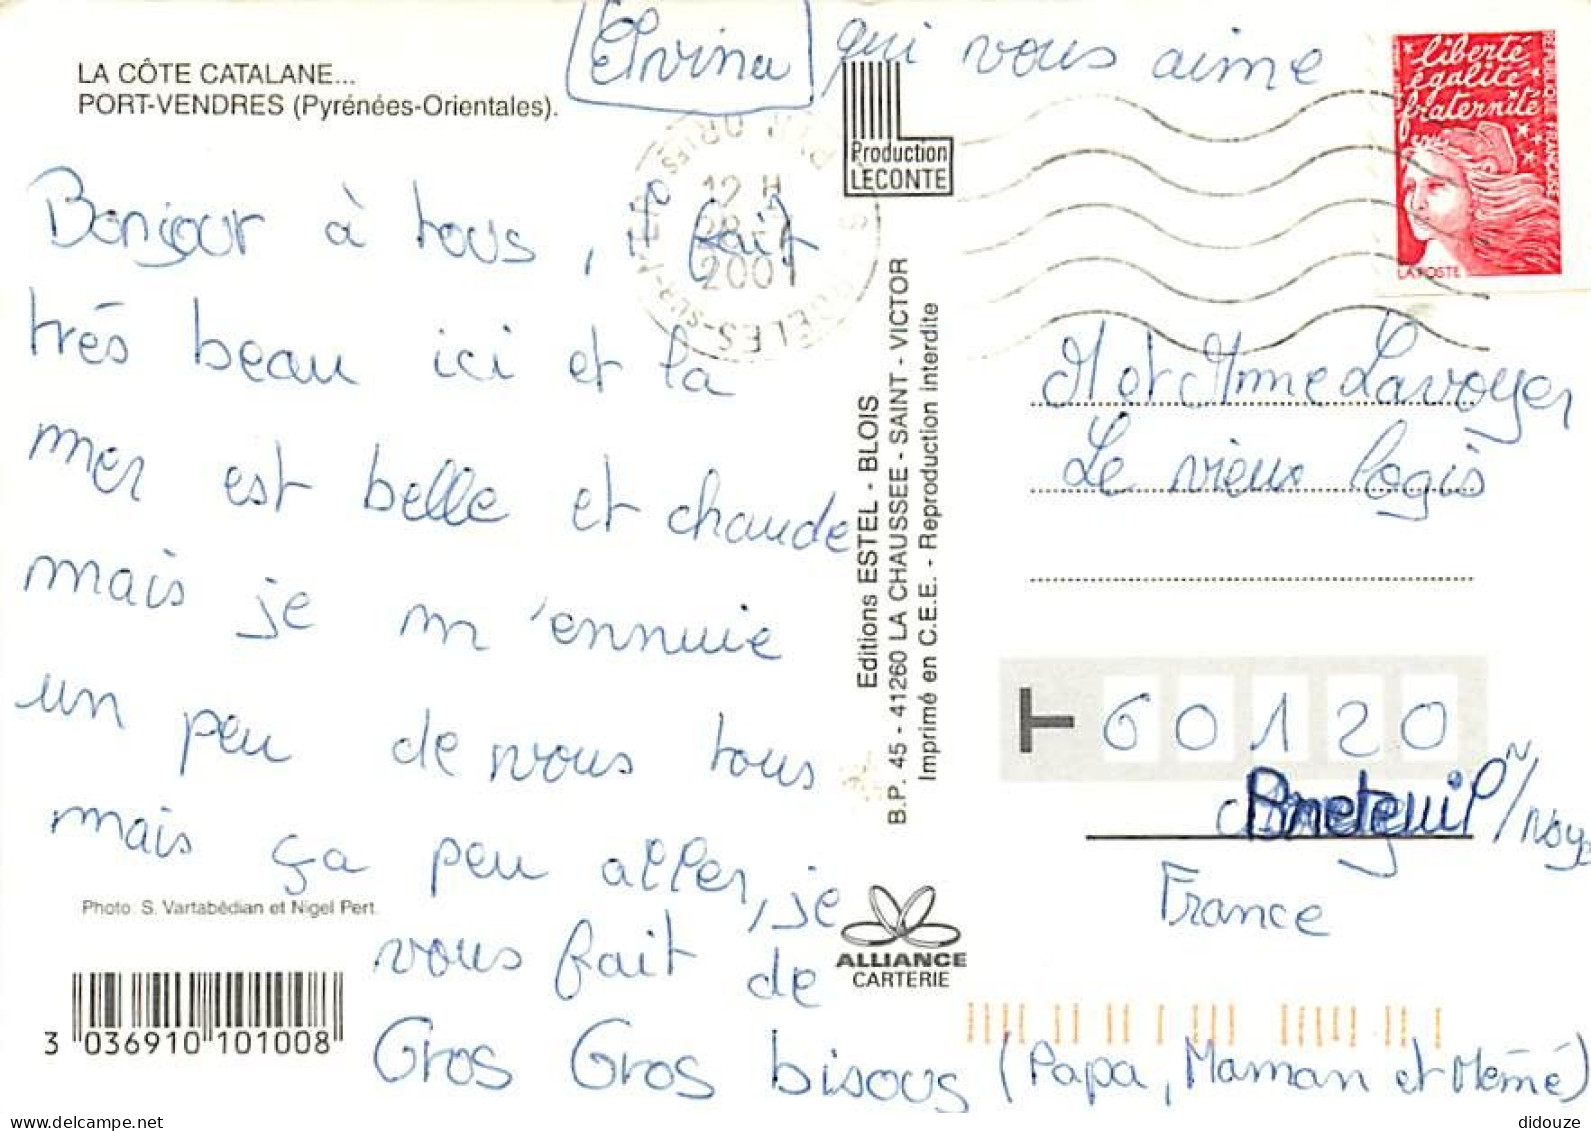 Elvina qui vous aime
LA CÔTE CATALANE...
PORT-VENDRES (Pyrénées-Orientales).
Bonjour à tous, il fait
très beau ici et la
mer est belle et chaude
mais je m'ennuie
un peu de vous tous
mais ça peu aller, je
vous fait de
Gros Gros bisous (Papa, Maman et Mémé)
Photo. S. Vartabédian et Nigel Pert.
3 036910 101008
Production
LECONTE
12 H
2001
Editions ESTEL - BLOIS
B.P. 45 - 41260 LA CHAUSSEE - SAINT - VICTOR
Imprimé en C.E.E. - Reproduction interdite
ALLIANCE
CARTERIE
liberté
égalité
fraternité
REPUBLIQUE FRANCAISE
LA POSTE
M et Mme Lavoyer
Le vieux logis
60120
Breteuil /Noye
France
didouze